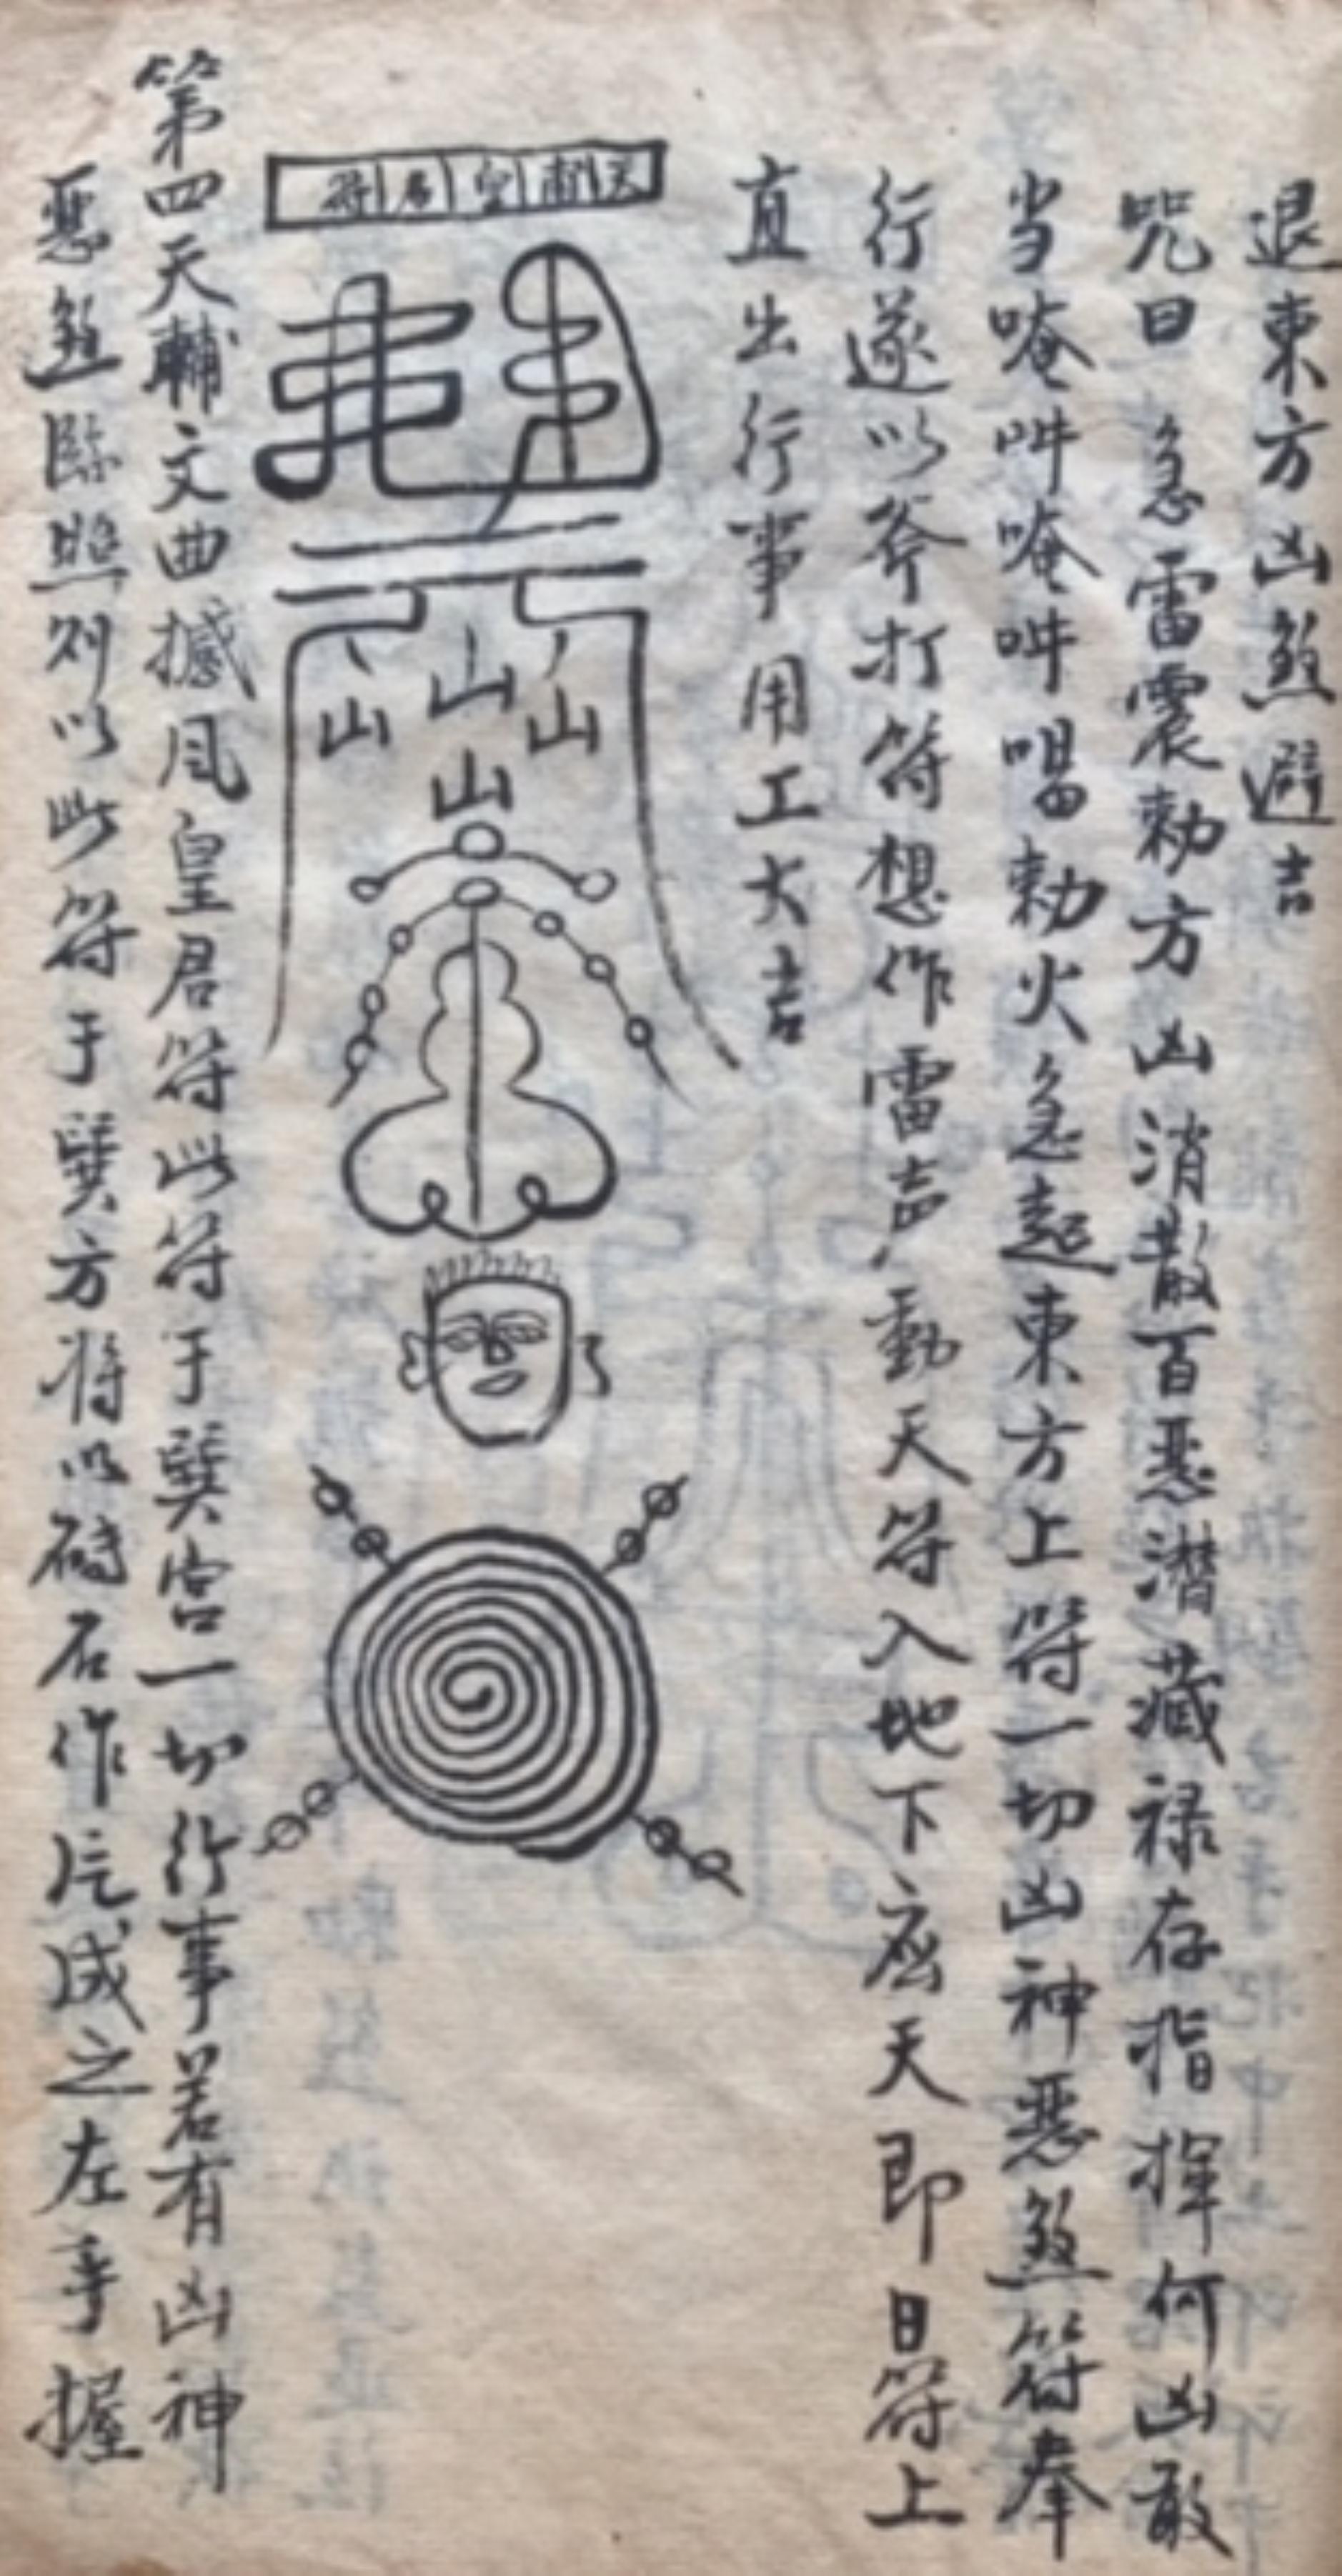 退東方凶煞避吉
咒曰 急雷震勅方凶消散百惡潜藏禄存指揮何凶敢
当唵吽唵吽唱勅火急起東方上符一切凶神惡煞符奉
行遂以斧打符想作雷声動天符入地下底天即日符上
直出行事用工大吉
天輔皇君符
山
山 山
山
第四天輔文曲撼風皇君符此符于巽宮一切行事若有凶神
惡煞臨照刈以此符于巽方将以石作 成之左手握